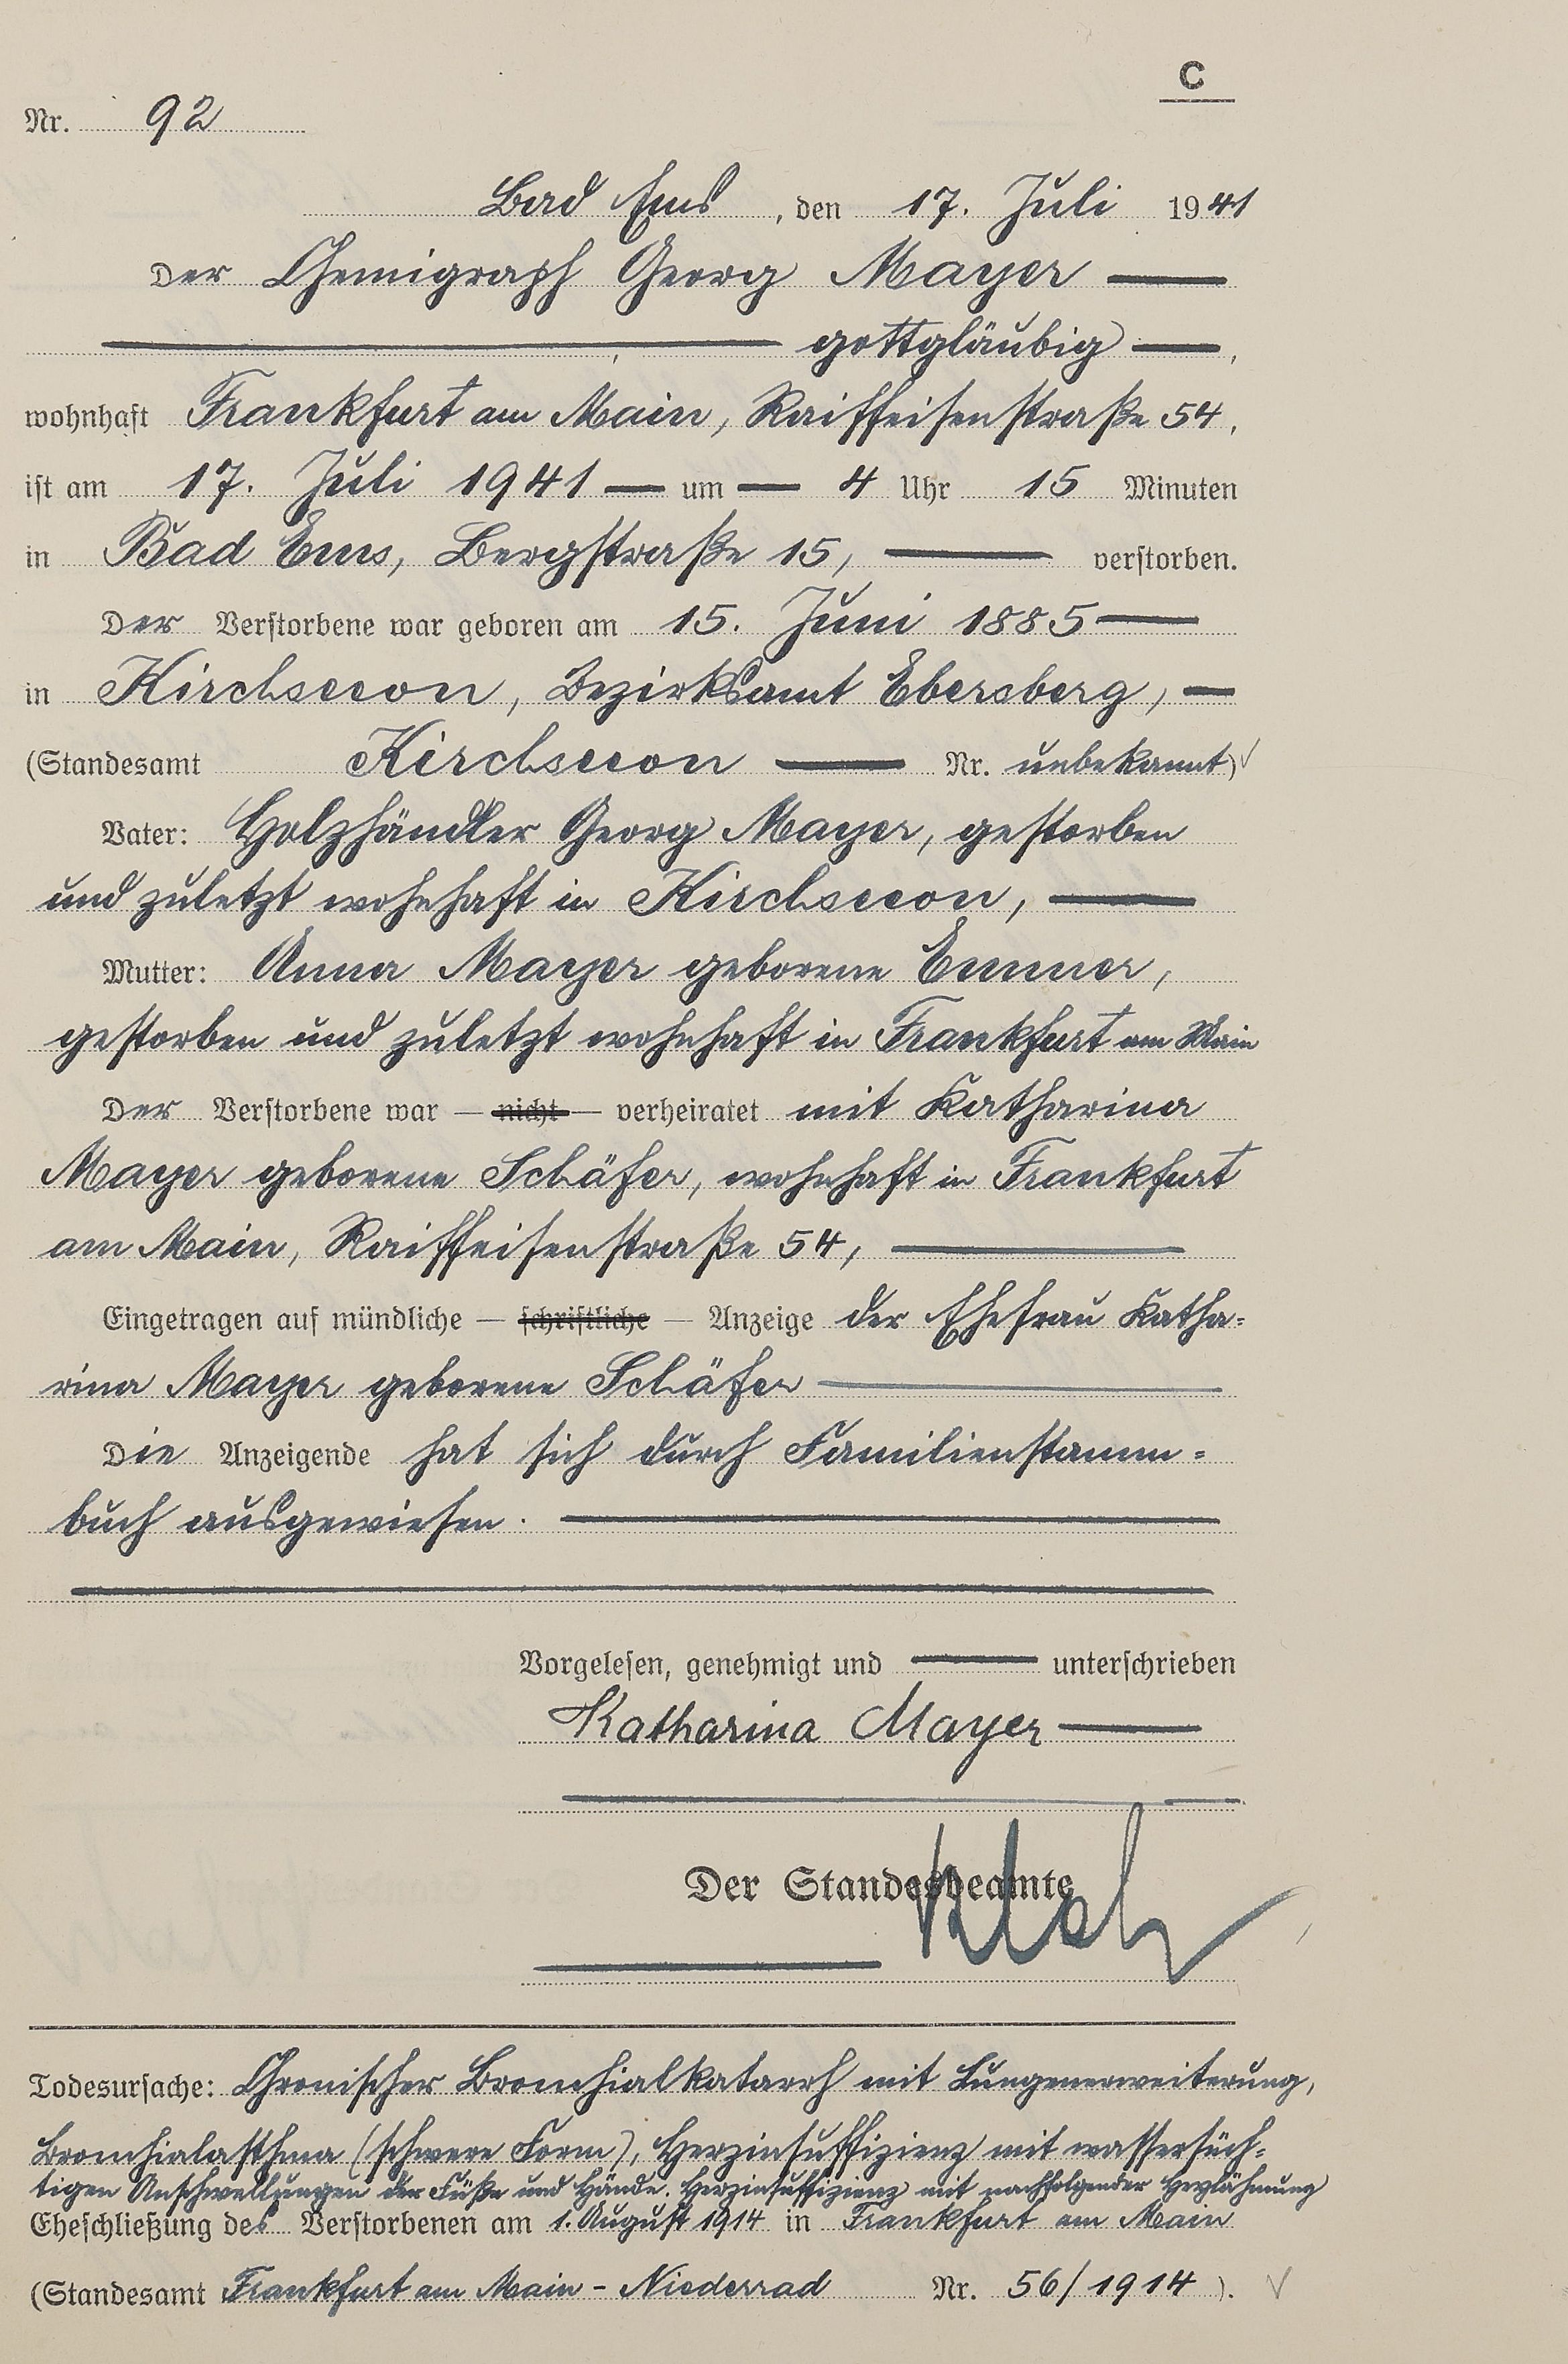 C
Nr. 92
Bad Ems, den 17. Juli 1941
Der Chemigraph Georg Mayer
gottgläubig,
wohnhaft Frankfurt am Main, Raiffeisenstraße 54,
ist am 17. Juli 1941 um 4 Uhr 15 Minuten
in Bad Ems, Bergstraße 15, verstorben.
Der Verstorbene war geboren am 15. Juni 1885
in Kirchseeon, Bezirksamt Ebersberg,
(Standesamt Kirchseeon Nr. unbekannt)
Vater: Holzhändler Georg Mayer, gestorben
und zuletzt wohnhaft in Kirchseeon,
Mutter: Anna Mayer geborene Emmer,
gestorben und zuletzt wohnhaft in Frankfurt am Main
Der Verstorbene war — nicht — verheiratet mit Katharina
Mayer geborene Schäfer, wohnhaft in Frankfurt
am Main, Raiffeisenstraße 54,
Eingetragen auf mündliche — schriftliche — Anzeige der Ehefrau Katha=
rina Mayer geborene Schäfer
Die Anzeigende hat sich durch Familienstamm=
buch ausgewiesen.
Vorgelesen, genehmigt und unterschrieben
Katharina Mayer
Der Standesbeamte
Todesursache: Chronischer Bronchialkatarrh mit Lungenerweiterung,
Bronchialasthma (schwere Form), Herzinsuffizienz mit wassersüch=
tigen Anschwellungen der Füße und Hände. Herzinsuffizienz mit nachfolgender Herzlähmung
Eheschließung des Verstorbenen am 1. August 1914 in Frankfurt am Main
(Standesamt Frankfurt am Main - Niederrad Nr. 56/1914).